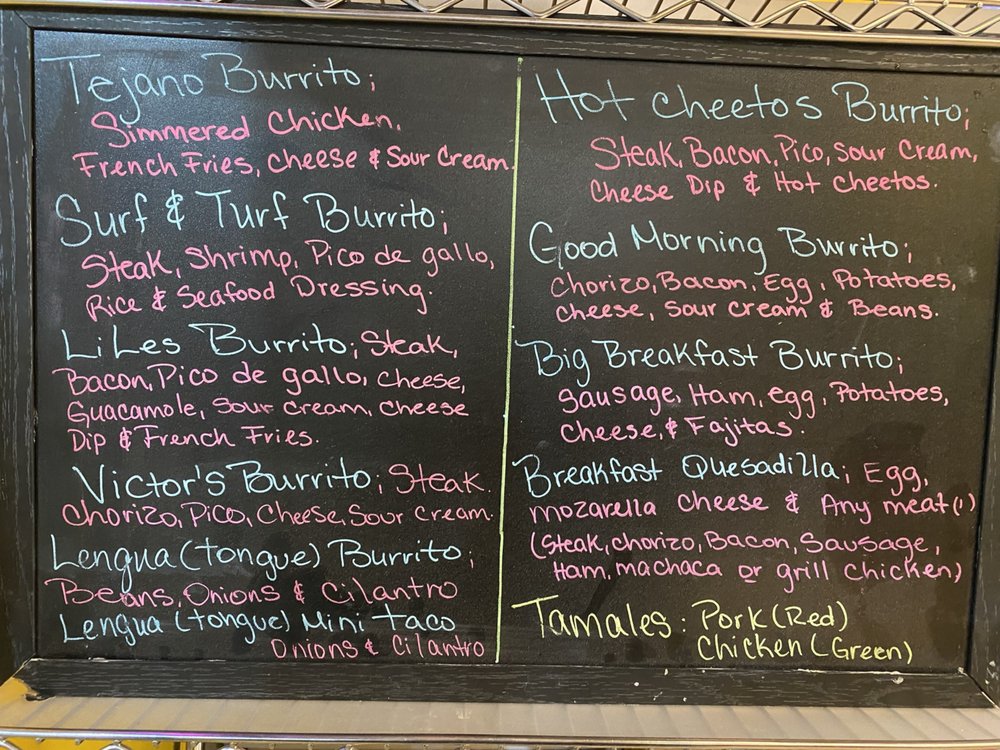 Tejano Burrito;
Simmered Chicken,
French Fries, Cheese & Sour Cream.
Surf & Turf Burrito;
Steak, Shrimp, Pico de gallo,
Rice & Seafood Dressing.
LiLes Burrito; Steak,
Bacon, Pico de gallo, Cheese,
Guacamole, Sour cream, cheese
Dip & French Fries.
Victor's Burrito; Steak.
Chorizo, Pico, Cheese, Sour cream.
Lengua (tongue) Burrito;
Beans, Onions & Cilantro
Lengua (tongue) Mini taco
Onions & Cilantro
Hot Cheetos Burrito;
Steak, Bacon, Pico, Sour cream,
Cheese Dip & Hot Cheetos.
Good Morning Burrito;
Chorizo, Bacon, Egg, Potatoes,
Cheese, Sour Cream & Beans.
Big Breakfast Burrito;
Sausage, Ham, egg, Potatoes,
Cheese, & Fajitas.
Breakfast Quesadilla; Egg,
mozarella Cheese & Any meat(1)
(Steak, chorizo, Bacon, Sausage,
Ham, machaca or grill chicken)
Tamales: Pork (Red)
Chicken (Green)